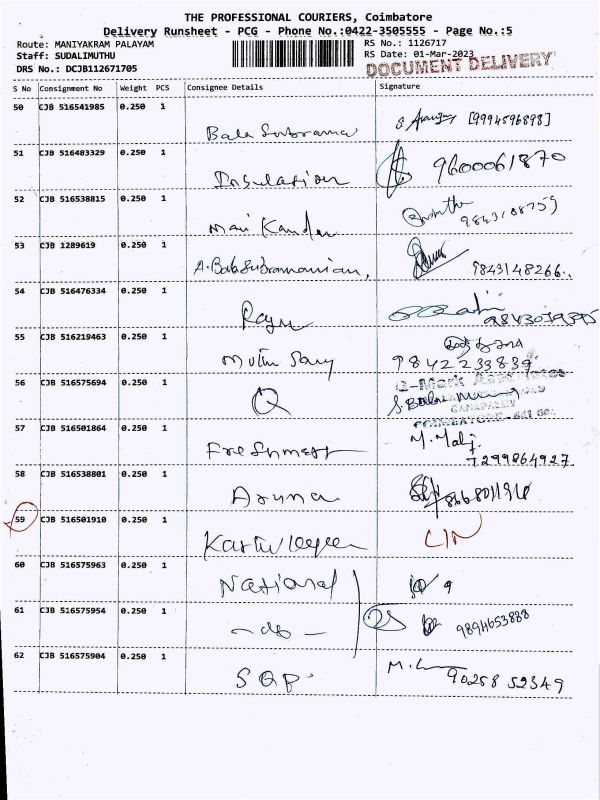 THE PROFESSIONAL COURIERS, Coimbatore
Delivery Runsheet - PCG - Phone No.:0422-3505555 - Page No.:5
Route: MANIYAKRAM PALAYAM
RS No.: 1126717
Staff: SUDALIMUTHU
RS Date: 01-Mar-2023
DRS No.: DCJB112671705
DOCUMENT DELIVERY
S No Consignment No Weight PCS Consignee Details Signature
50 CJB 516541985 0.250 1
Bala Subrama [9994596898]
51 CJB 516403329 0.250 1
Insulation 9600061870
52 CJB 516538815 0.250 1
Mani Kandan 9843108759
53 CJB 1289619 0.250 1
A.Balasubramanian, 9843148266
54 CJB 516476334 0.250 1
Raju
55 CJB 516219463 0.250 1
Muthu Samy 9842233839
56 CJB 516575694 0.250 1
Q Q-Mark
COIMBATORE
57 CJB 516501864 0.250 1
Freshmest M. Malj
7299864927
58 CJB 516538801 0.250 1
Aruna
59 CJB 516501910 0.250 1
L/N
60 CJB 516575963 0.250 1
National
61 CJB 516575954 0.250 1
-do- 9894653888
62 CJB 516575904 0.250 1
SQP 90258 52349